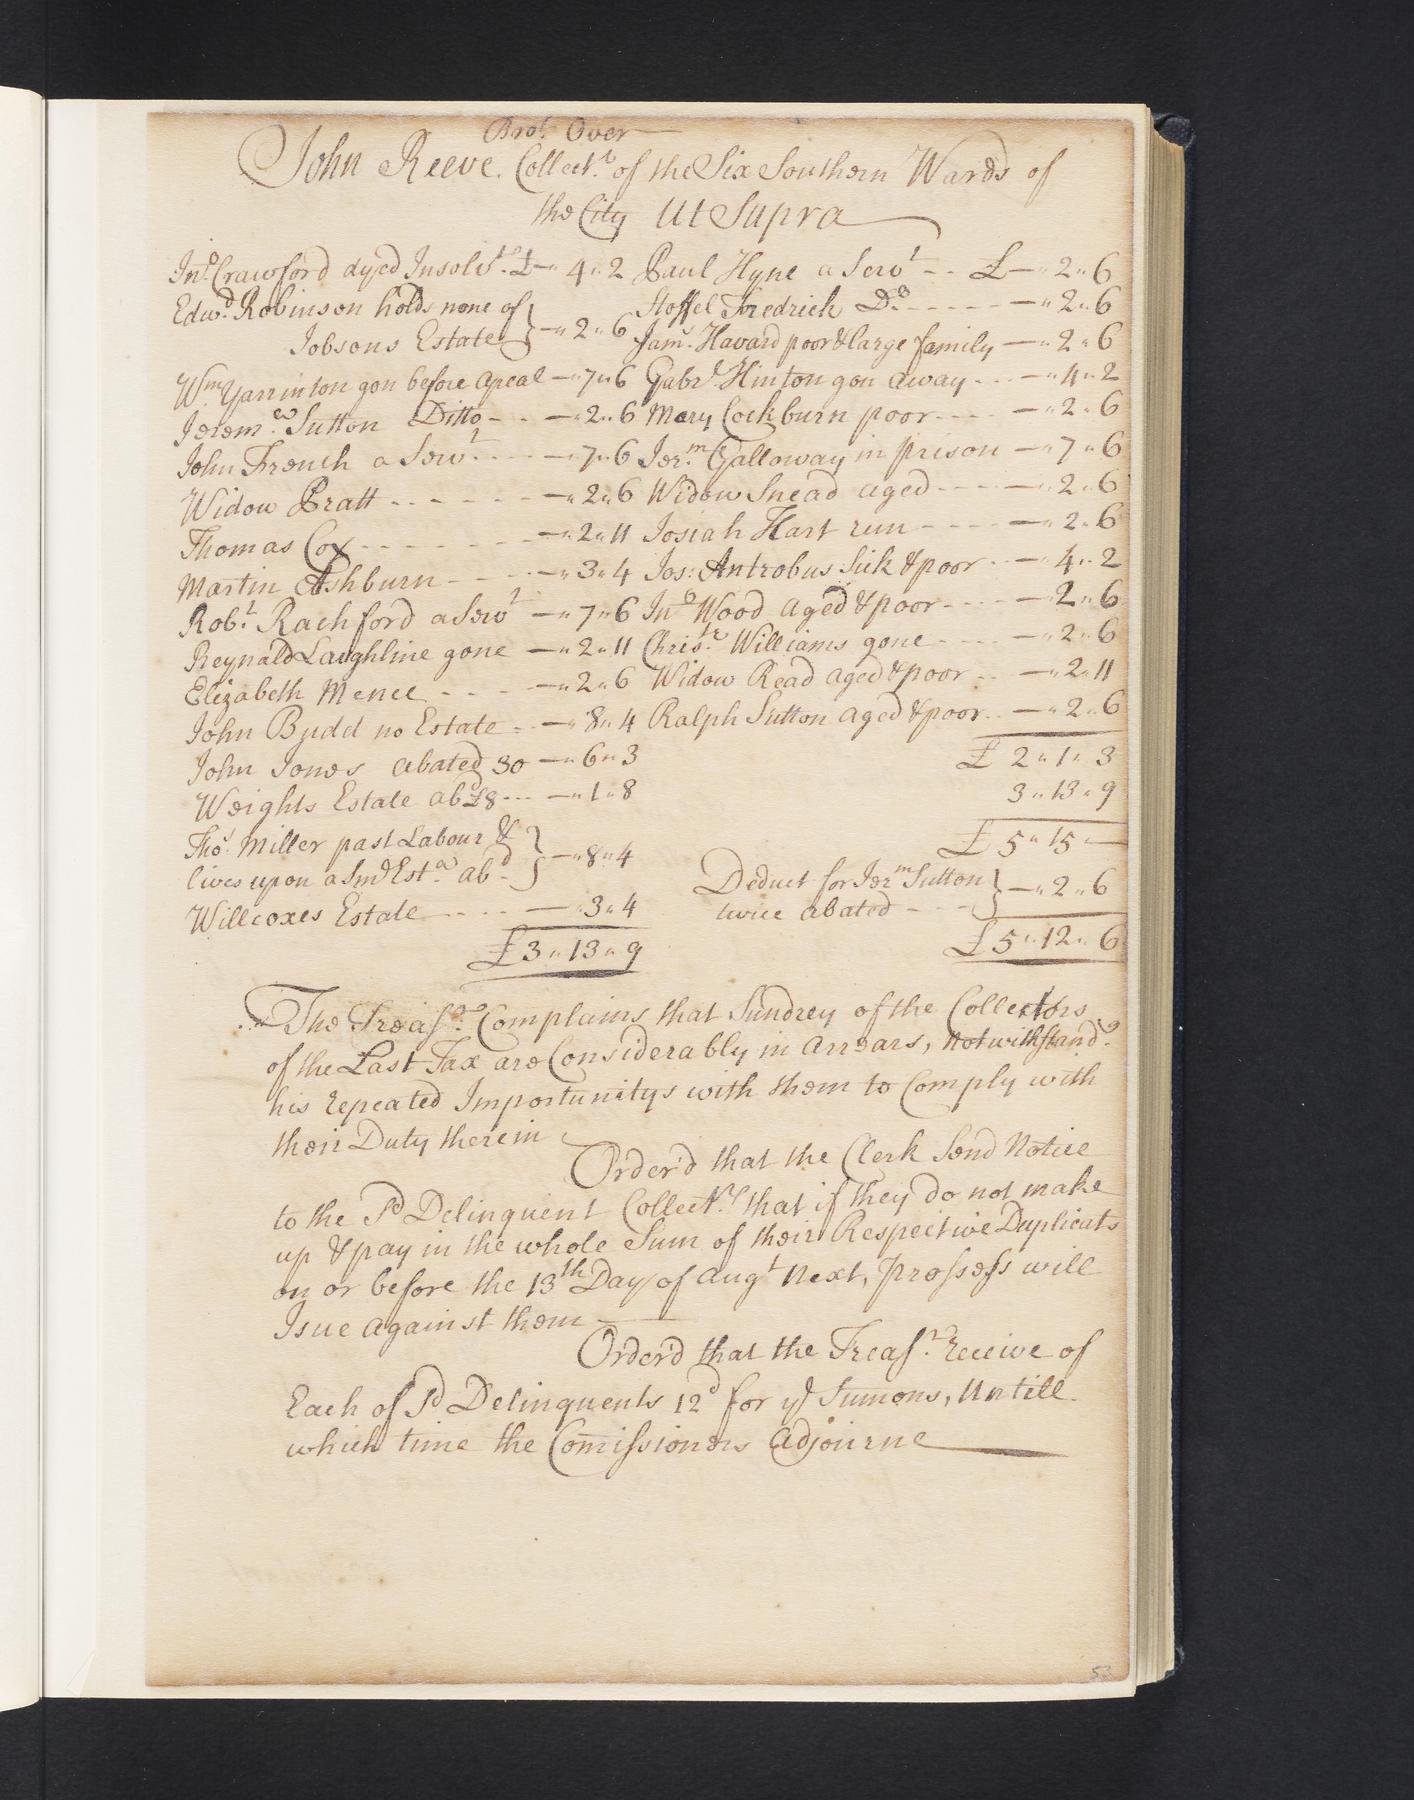 Bro.t Over
John Reeve. Collect.r of the Six Southern Wards of
the City Ut Supra
Jn.o Crawford dyed Insolv.t £ — " 4 " 2
Edw.d Robinson holds none of
Jobsons Estate } — " 2 " 6
W.m Yarrinton gon before apeal — " 7 " 6
Jerem.a Sutton Ditto - - — " 2 " 6
John French a Serv.t - - - — " 7 " 6
Widow Pratt - - - - - — " 2 " 6
Thomas Cox - - - - - - — " 2 " 11
Martin Ashburn - - - - — " 3 " 4
Rob.t Rachford a Serv.t — " 7 " 6
Reynald Laughline gone — " 2 " 11
Elizabeth Mence - - - - — " 2 " 6
John Budd no Estate - - — " 8 " 4
John Jones abated 30 — " 6 " 3
Weights Estate ab.d £8 - - - — " 1 " 8
Tho.s Miller past Labour &
lives upon a Sm.l Est.a ab.d } — " 8 " 4
Willcoxes Estate - - - - — " 3 " 4
£ 3 " 13 " 9
Paul Hyne a Serv.t - - £ — " 2 " 6
Stoffel Fredrick D.o - - - - - — " 2 " 6
Jam.s Havard poor & large family — " 2 " 6
Gabr.l Hinton gon away - - - — " 4 " 2
Mary Cockburn poor - - - - — " 2 " 6
Jer.m Galloway in prison — " 7 " 6
Widow Snead aged - - - - — " 2 " 6
Josiah Hart run - - - - — " 2 " 6
Jos: Antrobus Sick & poor - - — " 4 " 2
Jn.o Wood aged & poor - - - - — " 2 " 6
Chris.tr Williams gone - - - - — " 2 " 6
Widow Read aged & poor - - — " 2 " 11
Ralph Sutton aged & poor - - — " 2 " 6
£ 2 " 1 " 3
3 " 13 " 9
£ 5 " 15 " —
Deduct for Jer.m Sutton
twice abated - - - } — " 2 " 6
£ 5 " 12 " 6
The Treas.r Complains that Sundrey of the Collectors
of the Last Tax are Considerably in arrears, notwithstand.g
his repeated Importunitys with them to Comply with
their Duty therein
Order'd that the Clerk Send Notice
to the s.d Delinquent Collect.rs that if they do not make
up & pay in the whole Sum of their Respective Duplicats
on or before the 13th Day of Aug.t Next, prosess will
Isue against them —
Order'd that the Treas.r receive of
Each of s.d Delinquents 12d for y.e Sumons, Untill
which time the Comissioners Adjourne
53